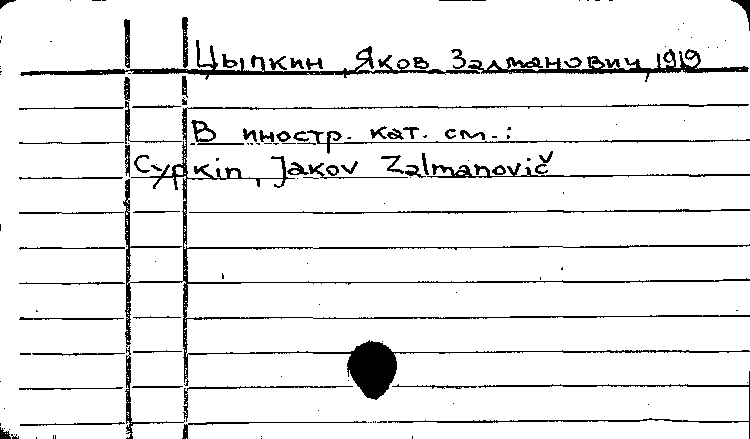 Цыпкин, Яков Залманович, 1919
В иностр. кат. см.:
Cypkin, Jakov Zalmanovič